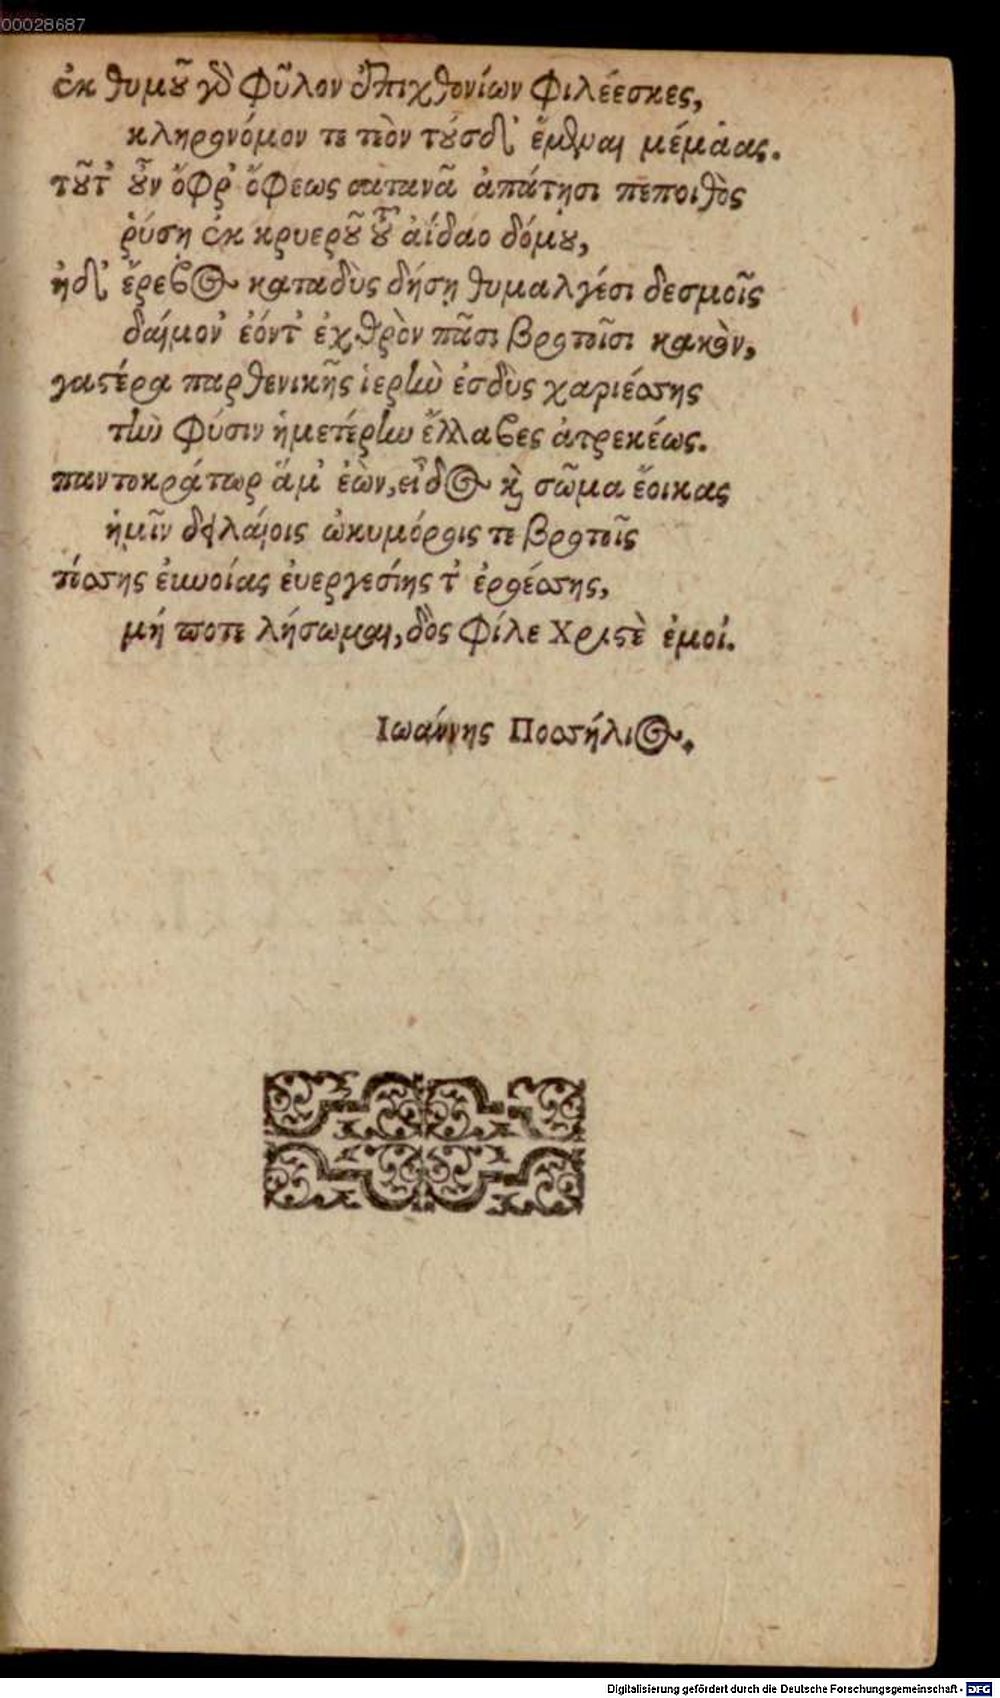 00028687
ἐκ θυμοῦ γὰρ φῦλον ἐπιχθονίων φιλέεσκες,
κληρονόμον τε τεὸν τούσδ' ἔμμεναι μέμαας.
τοῦτ' οὖν ὄφρ' ὄφεως σατανᾶ ἀπάτησι πεποιθὸς
ῥύσῃ ἐκ κρυεροῦ τοῦ ἀίδαο δόμου,
ἠδ' ἔρεβος καταδὺς δήσῃ θυμαλγέσι δεσμοῖς
δαίμον' ἐόντ' ἐχθρὸν πᾶσι βροτοῖσι κακὸν,
γαστέρα παρθενικῆς ἱερὴν ἐσδὺς χαριέσσης
τὴν φύσιν ἡμετέρην ἔλλαβες ἀτρεκέως.
παντοκράτωρ ἅμ' ἐὼν, εἶδος καὶ σῶμα ἔοικας
ἡμῖν δειλαίοις ὠκυμόροις τε βροτοῖς
τόσσης εὐνοίας εὐεργεσίης τ' ἐροέσσης,
μή ποτε λήσωμαι, δὸς φίλε Χριστὲ ἐμοί.
Ιωάννης Ποσσήλιος.
Digitalisierung gefördert durch die Deutsche Forschungsgemeinschaft - DFG